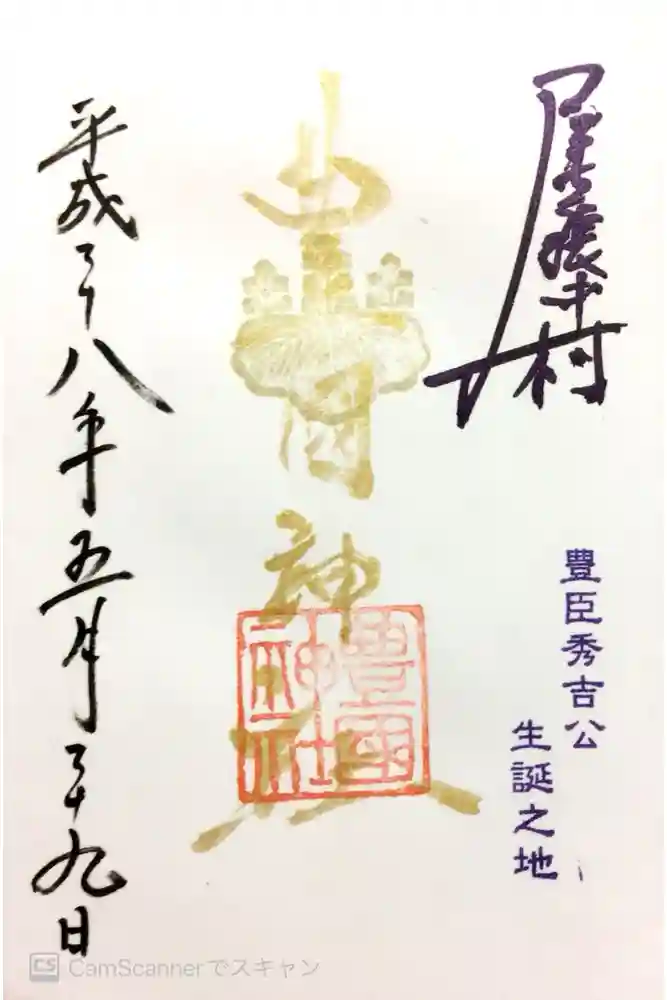 尾張中村
豊臣秀吉公
生誕之地
豊國神社
豊國神社
平成二十八年五月二十九日
CS CamScannerでスキャン